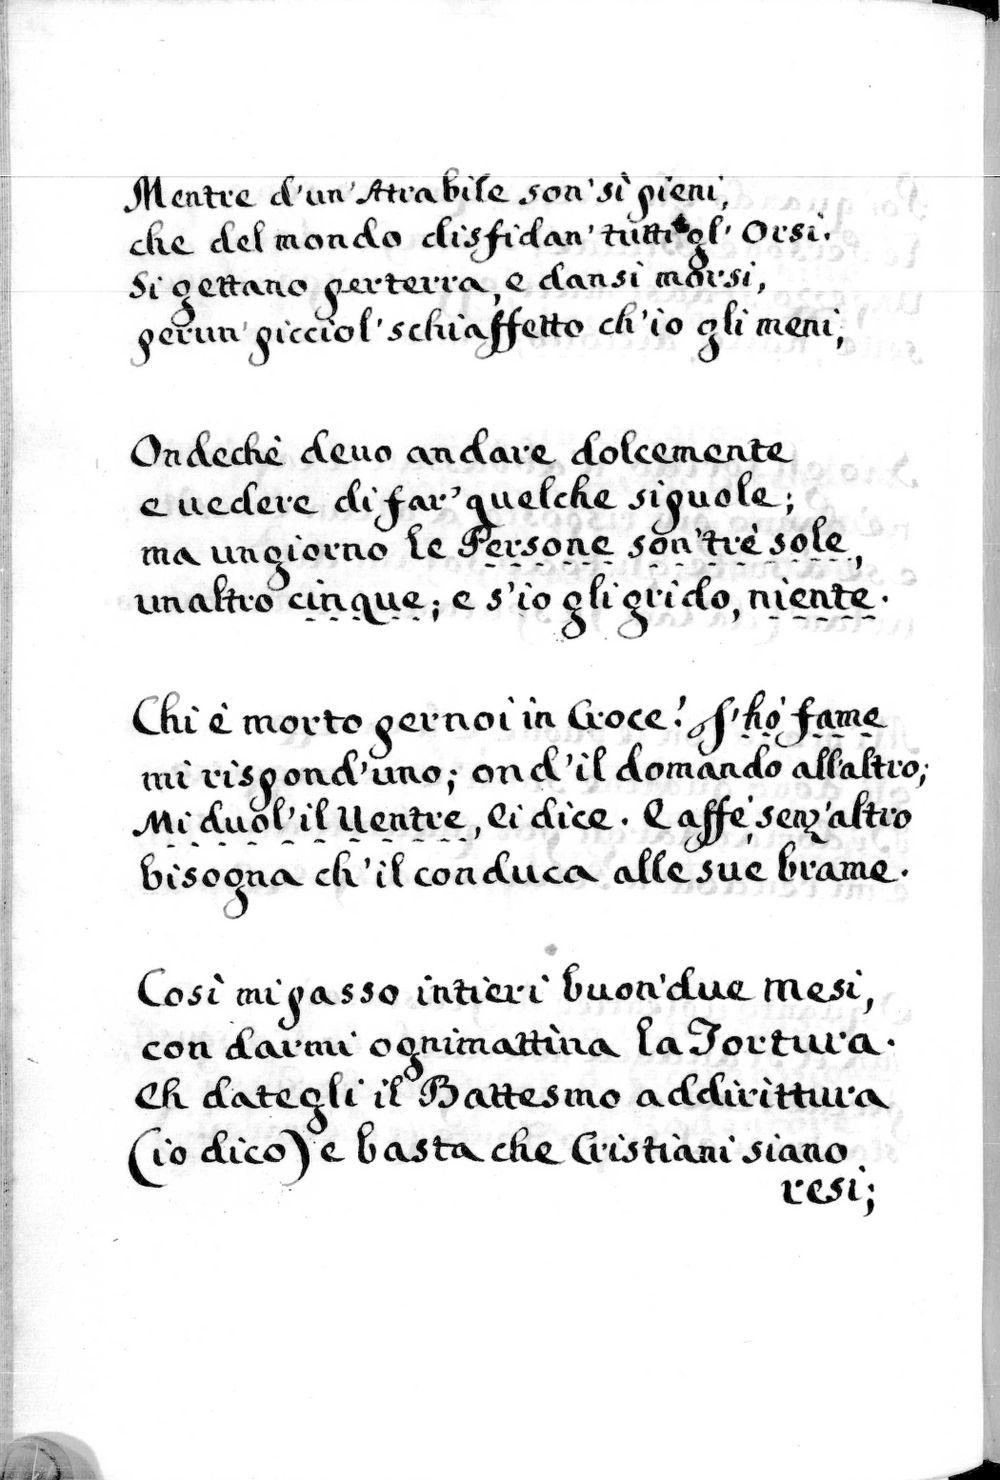 Mentre d'un' Atrabile son' sì pieni,
che del mondo disfidan' tutti gl' Orsi.
Si gettano perterra, e dansi morsi,
perun' picciol' schiaffetto ch'io gli meni;
Ondechè deuo andare dolcemente
e uedere di far' quelche sipuole;
ma ungiorno le Persone son' trè sole,
unaltro cinque; e s'io gli grido, niente.
Chi è morto pernoi in Croce? I' hò fame
mi rispond'uno; ond'il domando all'altro;
Mi duol'il Uentre, ei dice. E affè, senz'altro
bisogna ch'il conduca alle sue brame.
Così mi passo intieri buon'due mesi,
con darmi ognimattina la Tortura.
Eh dategli il Battesmo addirittura
(io dico) e basta che Cristiani siano
resi;